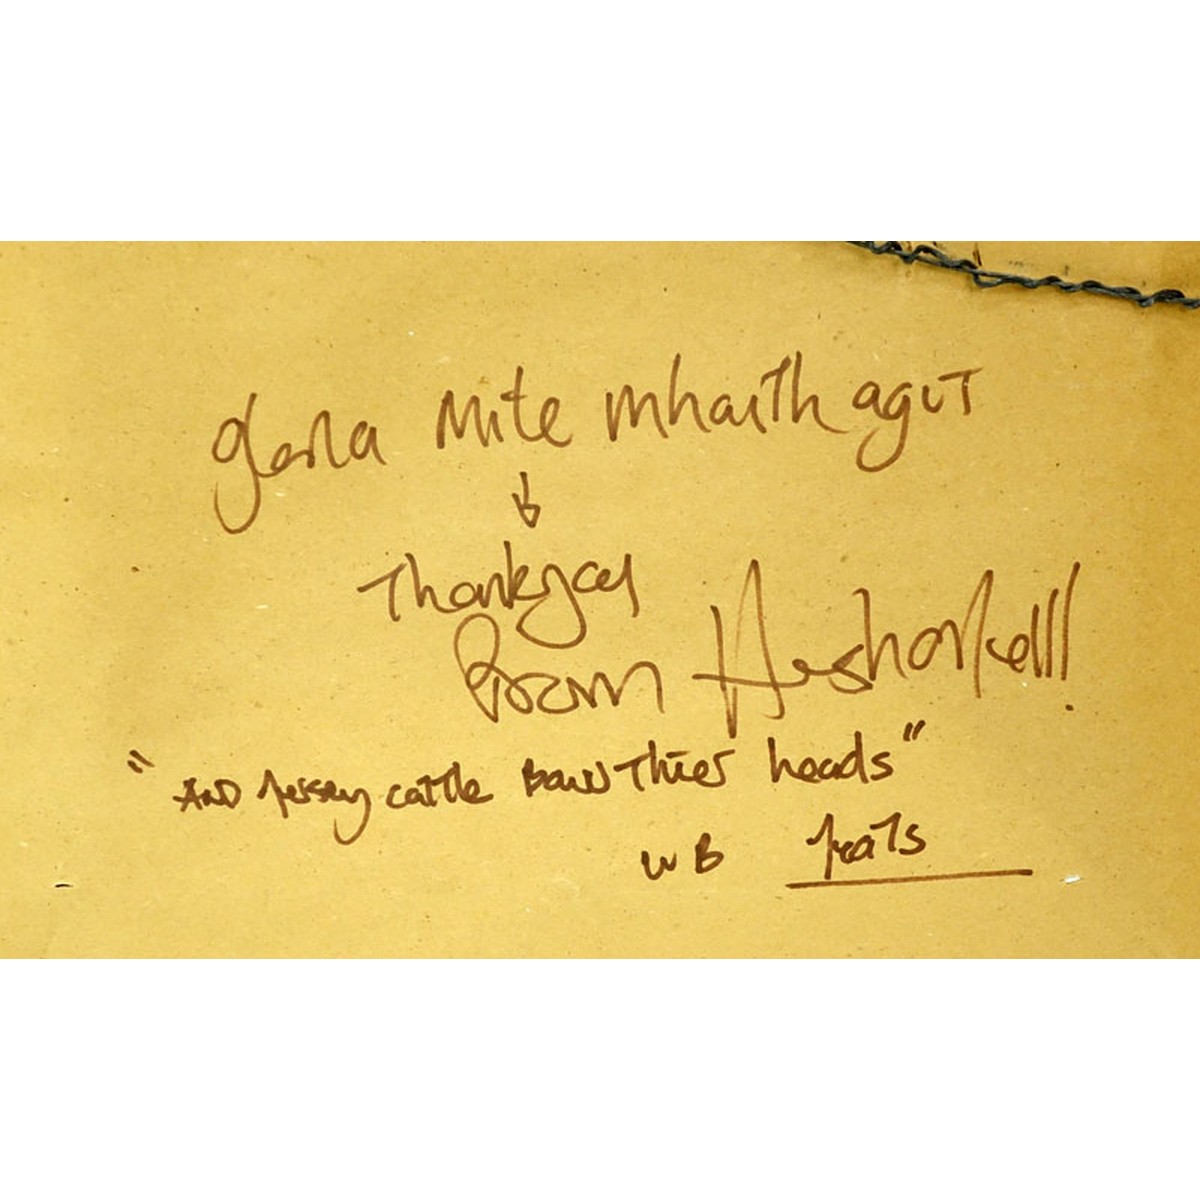 gona mite mhaith agut
Thankyou
from
"And Jersey cattle Baw Thier heads"
WB Yeats